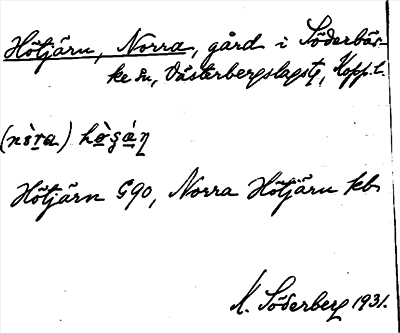 Hötjärn, Norra, gård i Söderbär-
ke sn, Västerbergslags tg, Kopp. l.
Hötjärn G90, Norra Hötjärn kb
K. Söderberg 1931.